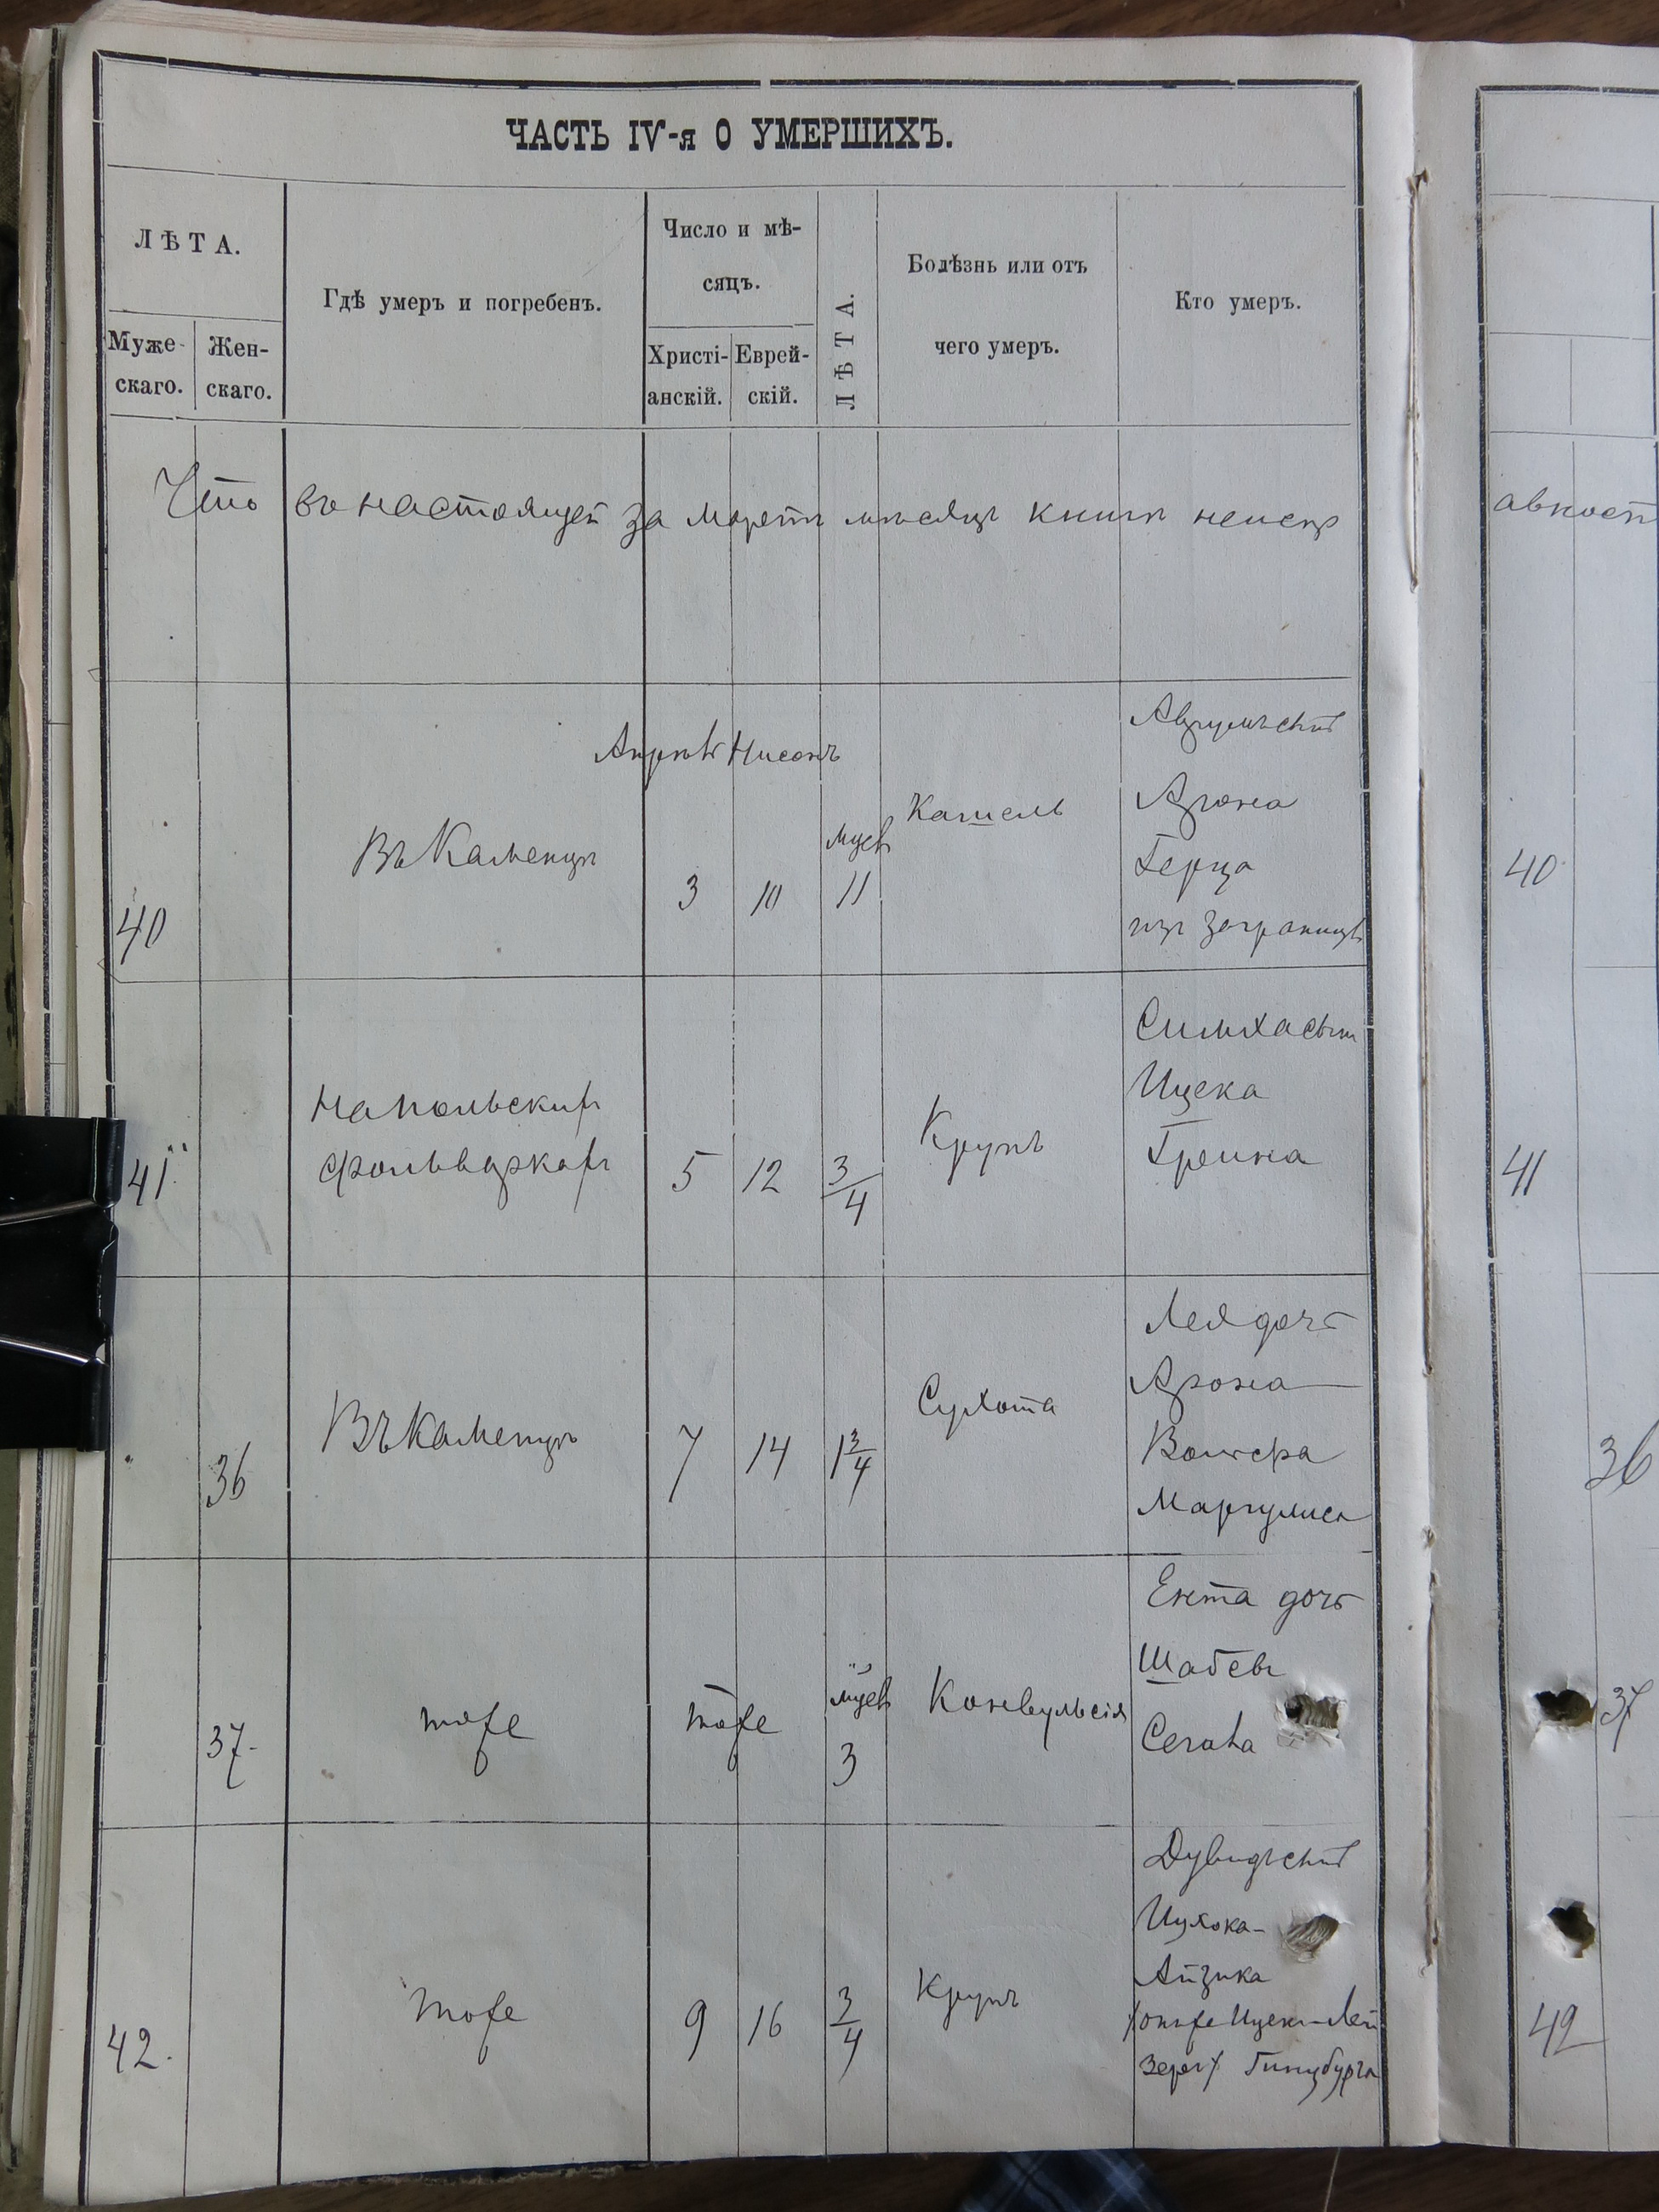 ЧАСТЬ IV-я О УМЕРШИХЪ.
ЛѢТА.
Муже-
скаго.
Жен-
скаго.
Гдѣ умеръ и погребенъ.
Число и мѣ-
сяцъ.
Христі-
анскій.
Еврей-
скій.
ЛѢТА.
Болѣзнь или отъ
чего умеръ.
Кто умеръ.
Что въ настоящей за мартъ мѣсяцъ книги неиспр
авност
40
Въ Каменцѣ
Апрель Нисонъ
3 10
мцев
11
Кашель
Арона
Герца
изъ заграницы
40
41
На польскихъ
фольваркахъ
5 12 3/4
Крупъ
Симха сын
Ицека
Грейна
41
36
Въ Каменцѣ
7 14 1 3/4
Сухота
Лея дочь
Арона
Волфа
Маргулиса
36
37
тоже
тоже
мцев
3
Конвульсія
Ента дочь
Шабсы
Сегала
37
42
тоже
9 16 3/4
Крупъ
Дувидъ сын
Ицхока-
Айзика
онже Ицекъ-Лей
Зерах Гинцбурга
42